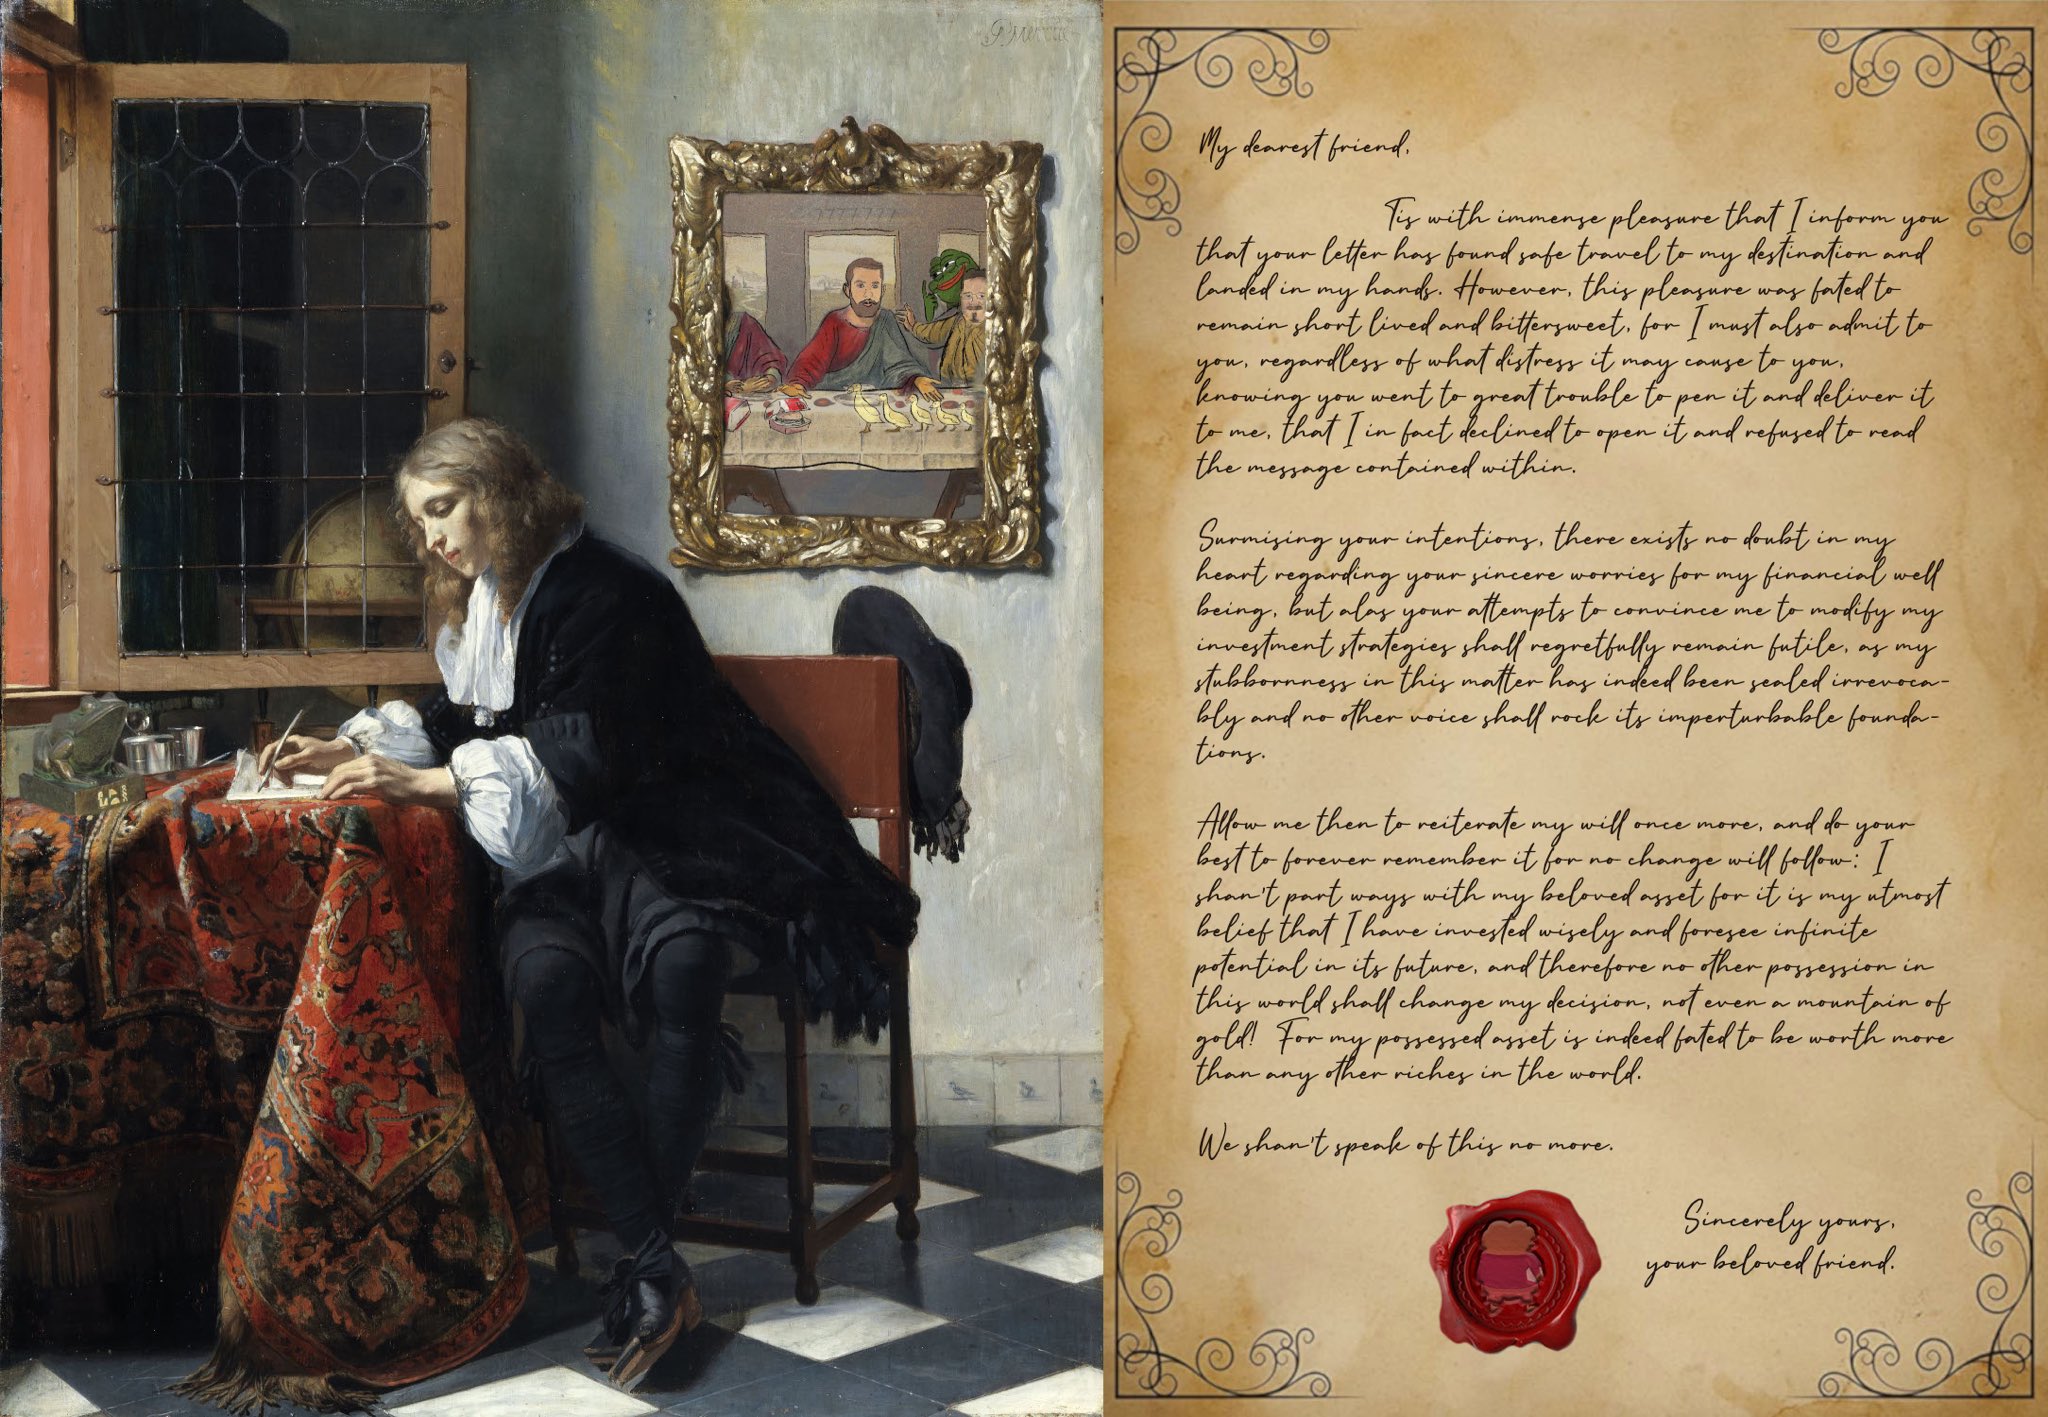 My dearest friend,
Tis with immense pleasure that I inform you
that your letter has found safe travel to my destination and
landed in my hands. However, this pleasure was fated to
remain short lived and bittersweet, for I must also admit to
you, regardless of what distress it may cause to you,
knowing you went to great trouble to pen it and deliver it
to me, that I in fact declined to open it and refused to read
the message contained within.
Surmising your intentions, there exists no doubt in my
heart regarding your sincere worries for my financial well
being, but alas your attempts to convince me to modify my
investment strategies shall regretfully remain futile, as my
stubbornness in this matter has indeed been sealed irrevoca-
bly and no other voice shall rock its imperturbable founda-
tions.
Allow me then to reiterate my will once more, and do your
best to forever remember it for no change will follow: I
shan't part ways with my beloved asset for it is my utmost
belief that I have invested wisely and foresee infinite
potential in its future, and therefore no other possession in
this world shall change my decision, not even a mountain of
gold! For my possessed asset is indeed fated to be worth more
than any other riches in the world.
We shan't speak of this no more.
Sincerely yours,
your beloved friend.